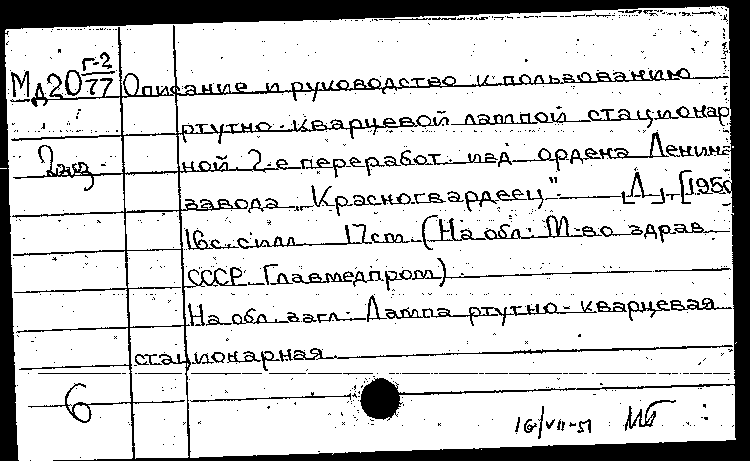 Мд20 Г-2/77 Описание и руководство к пользованию
ртутно-кварцевой лампой стационар
2экз. ной. 2-е переработ. изд. ордена Ленина
завода „Красногвардеец". [Л], [1950
16с. с илл. 17cm. (На обл.: М-во здрав.
СССР. Главмедпром).
На обл. загл.: Лампа ртутно-кварцевая
стационарная.
6
16/VII-51